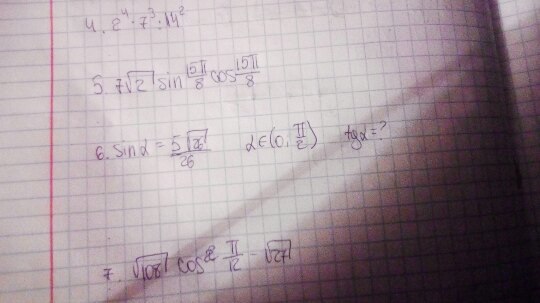 4. 2⁴ · 7³ : 14²
5. 7√2 sin 15π/8 cos 15π/8
6. sin α = 5√26/26 α ∈ (0; π/2) tg α = ?
7. √108 cos² π/12 - √27